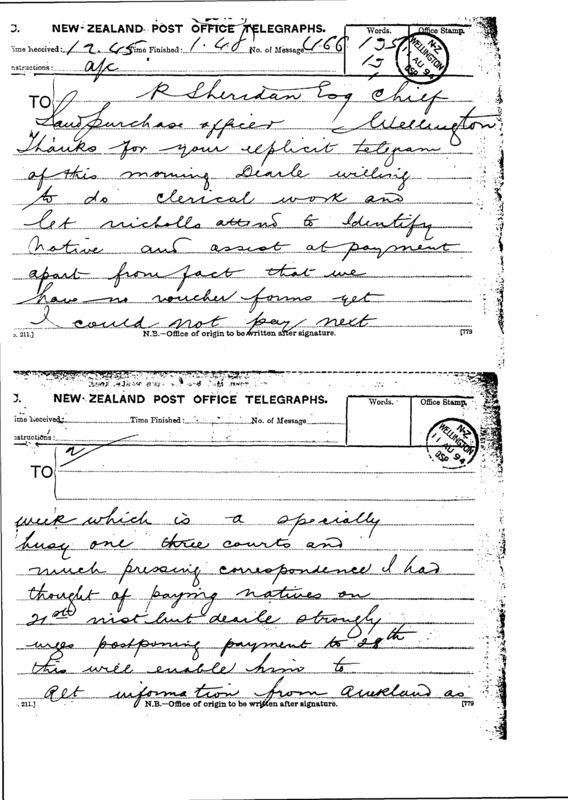 NEW-ZEALAND POST OFFICE TELEGRAPHS.
Words. Office Stamp.
ime Received: 12.45 Time Finished: 1.48 No. of Message 466
nstructions: a/c
N-Z WELLINGTON 11 AU 94 OSP
TO R Sheridan Esq Chief
Land purchase officer Wellington
Thanks for your explicit telegram
of this morning Dearle willing
to do clerical work and
let nicholls attend to Identify
Native and assist at payment
apart from fact that we
have no voucher forms yet
I could not pay next
. 211.] N.B.—Office of origin to be written after signature. [779
NEW-ZEALAND POST OFFICE TELEGRAPHS.
Words. Office Stamp.
ime Received: Time Finished: No. of Message
nstructions:
2
N-Z WELLINGTON 11 AU 94 OSP
TO
week which is a specially
busy one three courts and
much pressing correspondence I had
thought of paying natives on
21st inst but dearle strongly
urges postponing payment to 28th
this will enable him to
get information from auckland as
. 211.] N.B.—Office of origin to be written after signature. [779